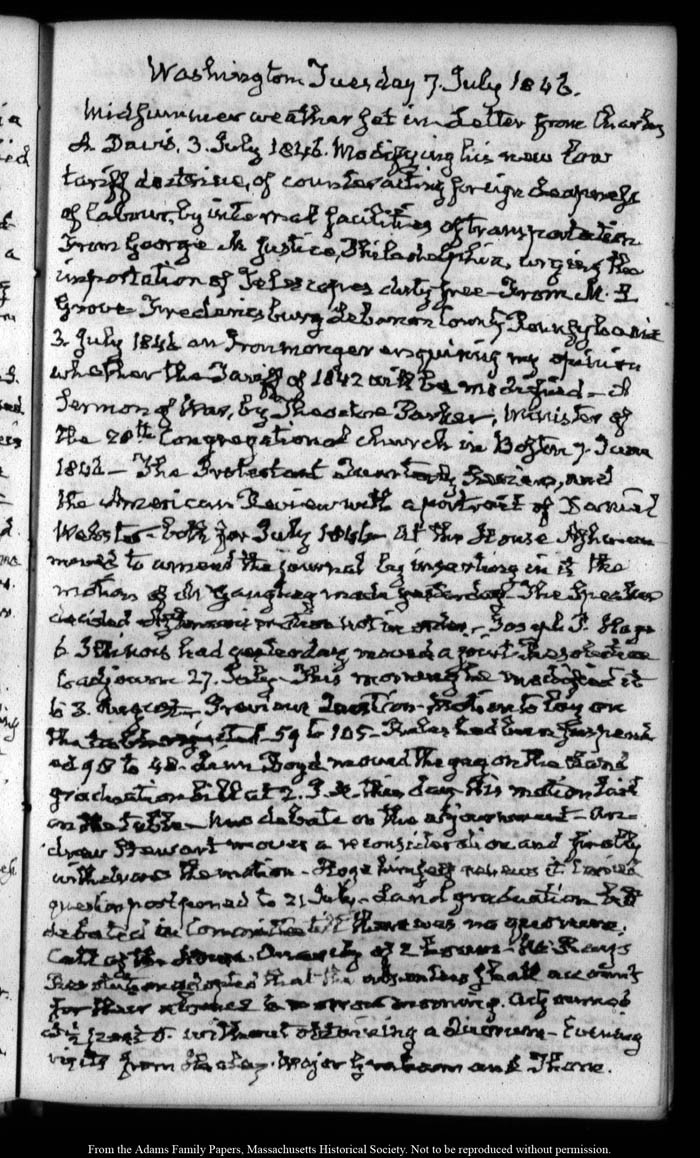 Washington Tuesday 7. July 1846.
Midsummer weather set in. Letter from Charles
A. Davis, 3. July 1846. Modifying his new law
tariff doctrine, of counteracting foreign cheapness
of labour, by internal facilities of transportation
From George M Justice, Philadelphia, urging the
importation of Telescopes duty free – From M. 
Grove Fredericksburg Lebanon County Pennsylvania
3. July 1846 an Ironmonger enquiring my opinion
whether the Tariff of 1842 will be modified – A
Sermon of War, by Theodore Parker, Minister of
the 28th Congregational church in Boston 7. June
1846 – The Protestant Quarterly Review, and
the American Review with a portrait of Daniel
Webster – both for July 1846 – At the House Ashmun
moved to amend the journal by inserting in it the
motion of McGaughey made yesterday. The Speaker
decided Ashmun's motion not in order – Joseph P. Hoge
Illinois had yesterday moved a joint Resolution
to adjourn 27. July – This morning he modified it
to 3. August – Previous Question – motion to lay on
the table rejected 59 to 105 – Rules had been suspend
ed 98 to 48. Linn Boyd moved the gag on the Land
graduation bill at 2. P.M. this day. His motion laid
on the table – no debate on the adjournment – An-
drew Stewart moves a reconsideration and finally
withdraws the motion – Hoge himself renews it
question postponed to 21 July – Land graduation bill
debated in Committee till there was no quorum.
Call of the House. of 2 hours –
Resolution adopted that the absentees shall account
for their absence to morrow morning. Adjourned
without obtaining a Quorum – Evening
visits from Major Graham and